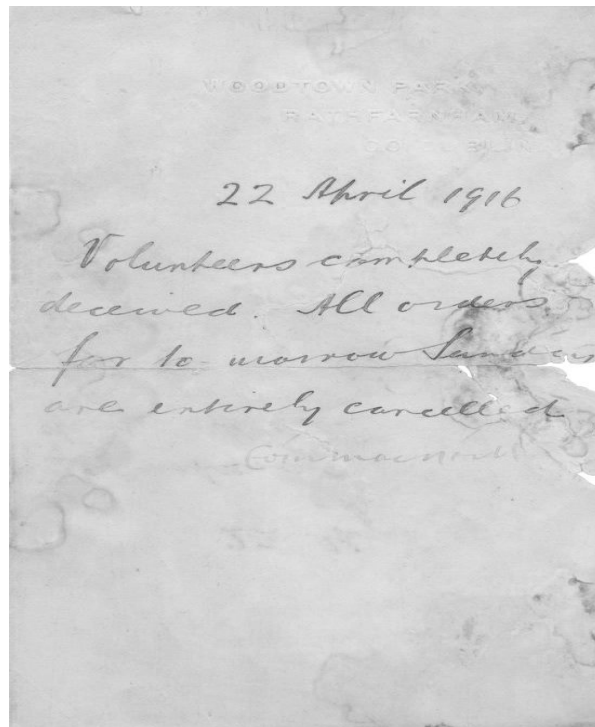 WOODTOWN PARK
RATHFARNHAM,
CO. DUBLIN.
22 April 1916
Volunteers completely
deceived. All orders
for to-morrow Sunday
are entirely cancelled
Eoin MacNeill